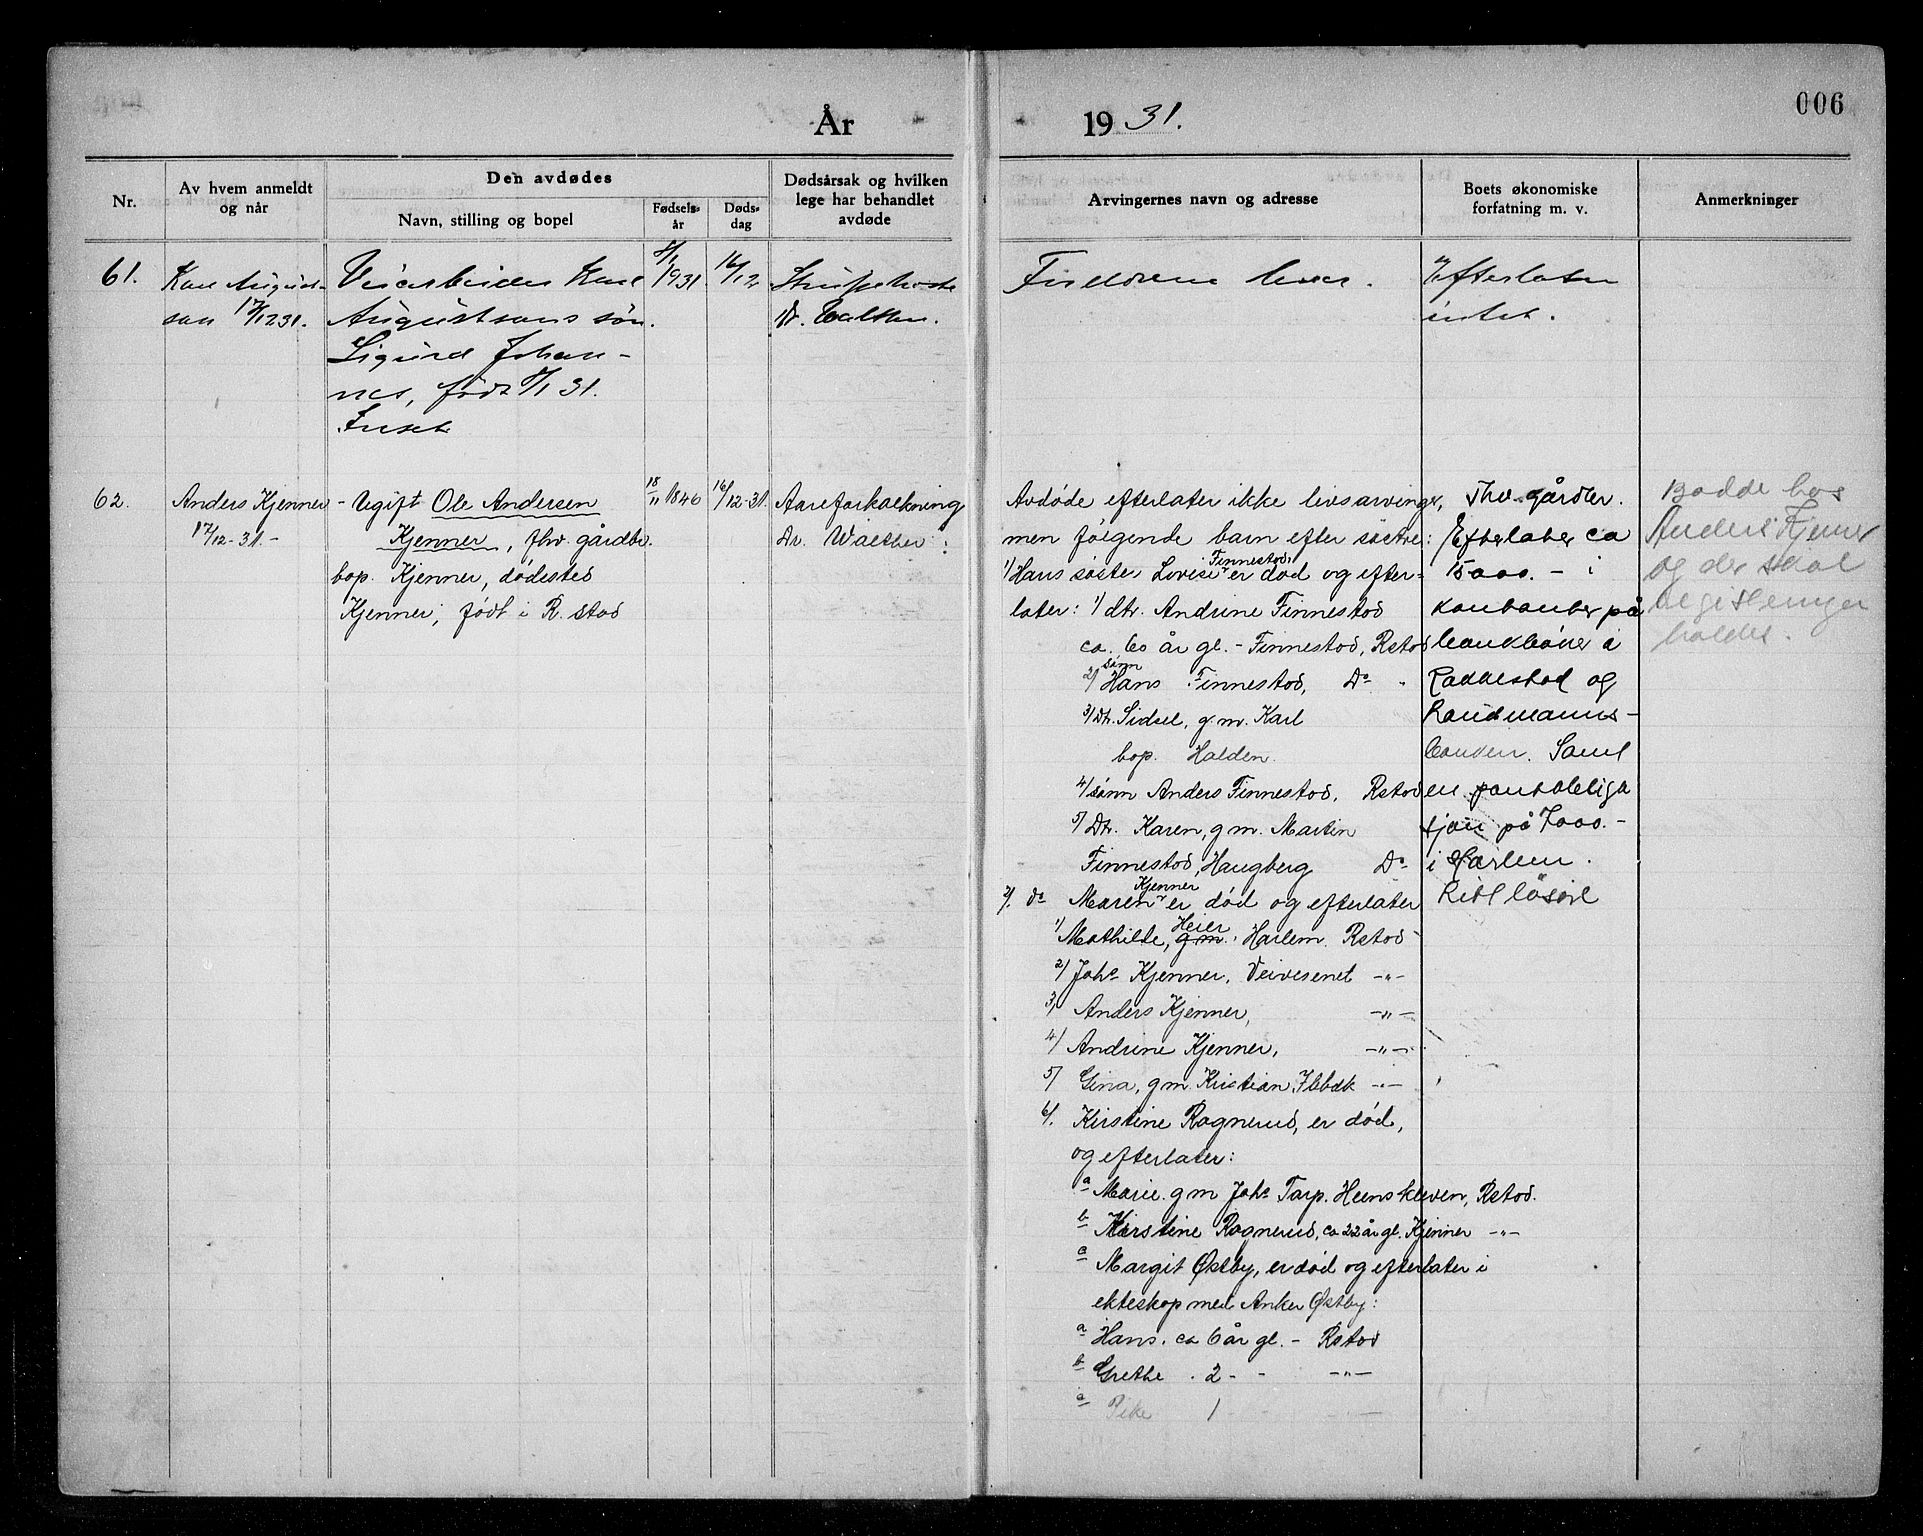 006
År 1931.
Nr.
Av hvem anmeldt
og når
Den avdødes
Navn, stilling og bopel
Fødsels-
år
Døds-
dag
Dødsårsak og hvilken
lege har behandlet
avdøde
Arvingernes navn og adresse
Boets økonomiske
forfatning m. v.
Anmerkninger
61.
Karl August-
san 17/12 31.
Veiarbeider Karl
Augustsans søn
Sigurd Johan-
nes, født 8/1 31.
8/1
1931.
16/12
Strupehoste
Dr. Walther.
Foreldrene lever.
Efterlater
intet.
62.
Anders Kjenner
17/12-31.-
- Ugift Ole Andersen
Kjenner, fhv. gårdbr.
bop. Kjenner, dødested
Kjenner, født i R.stad
18/11 1846
16/12-31.
Aareforkalkning
Dr. Walther.
Avdøde efterlater ikke livsarvinger,
men følgende barn efter søstre:
1/ Hans søster Lovise Finnestad er død og efter-
later: 1/ dtr. Andrine Finnestad
ca. 60 år gl. - Finnestad, Rstad
2/ sønn Hans Finnestad, Do -
3/ Dtr. Sidsel, g.m. Karl
bop. Halden.
4/ sønn Anders Finnestad, Rstad
5/ Dtr. Karen, g.m. Martin
Finnestad, Haugberg Do
2/. do Maren Kjenner er død og efterlater
1/ Mathilde, g.m. Heier Harlem Rstad
2/ Johs Kjenner, Veivesenet -"-
3/ Anders Kjenner, -"-
4/ Andrine Kjenner, -"-
5/ Gina, g.m. Kristian -"-
6/. Kirstine Ragnerud, er død,
og efterlater:
a Marie g m Johs Tarp. Heenskleven, Rstad.
b Kirstine Ragnerud, ca 22 år gl. Kjenner -"-
c Margit Østby, er død og efterlater i
ekteskap med Anker Østby:
a Hans. ca 6 år gl. - Rstad
b Grethe . 2 - - -"-
c Pike 1 - - -
Fhv. gårdbr.
Efterlater ca
15000.- i
kontanter på
bankbøker i
Rakkestad og
Landmanns-
banken. Samt
en pantobliga
sjon på 7000.-
i Harlem.
Litt løsøre
Bodde hos
Anders Kjenner
og der skal
registreringen
holdes.